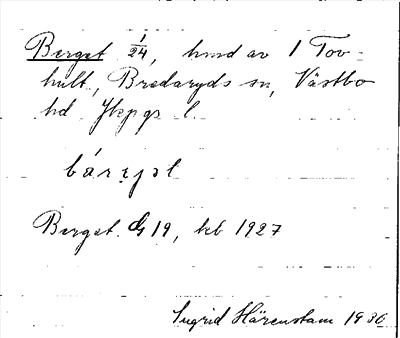 Berget 1/24, hmd av 1 Tov-
hult, Bredaryds sn, Västbo
hd Jkpgs l.
Berget G 19, kb 1927
Ingrid Härenstam 1930